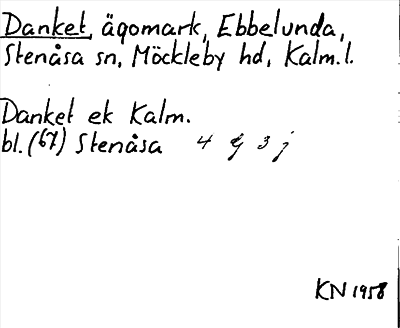 Danket, ägomark, Ebbelunda,
Stenåsa sn, Möckleby hd, Kalm.l.
Danket ek Kalm.
bl. (67) Stenåsa 4 g 3 j
KN 1958